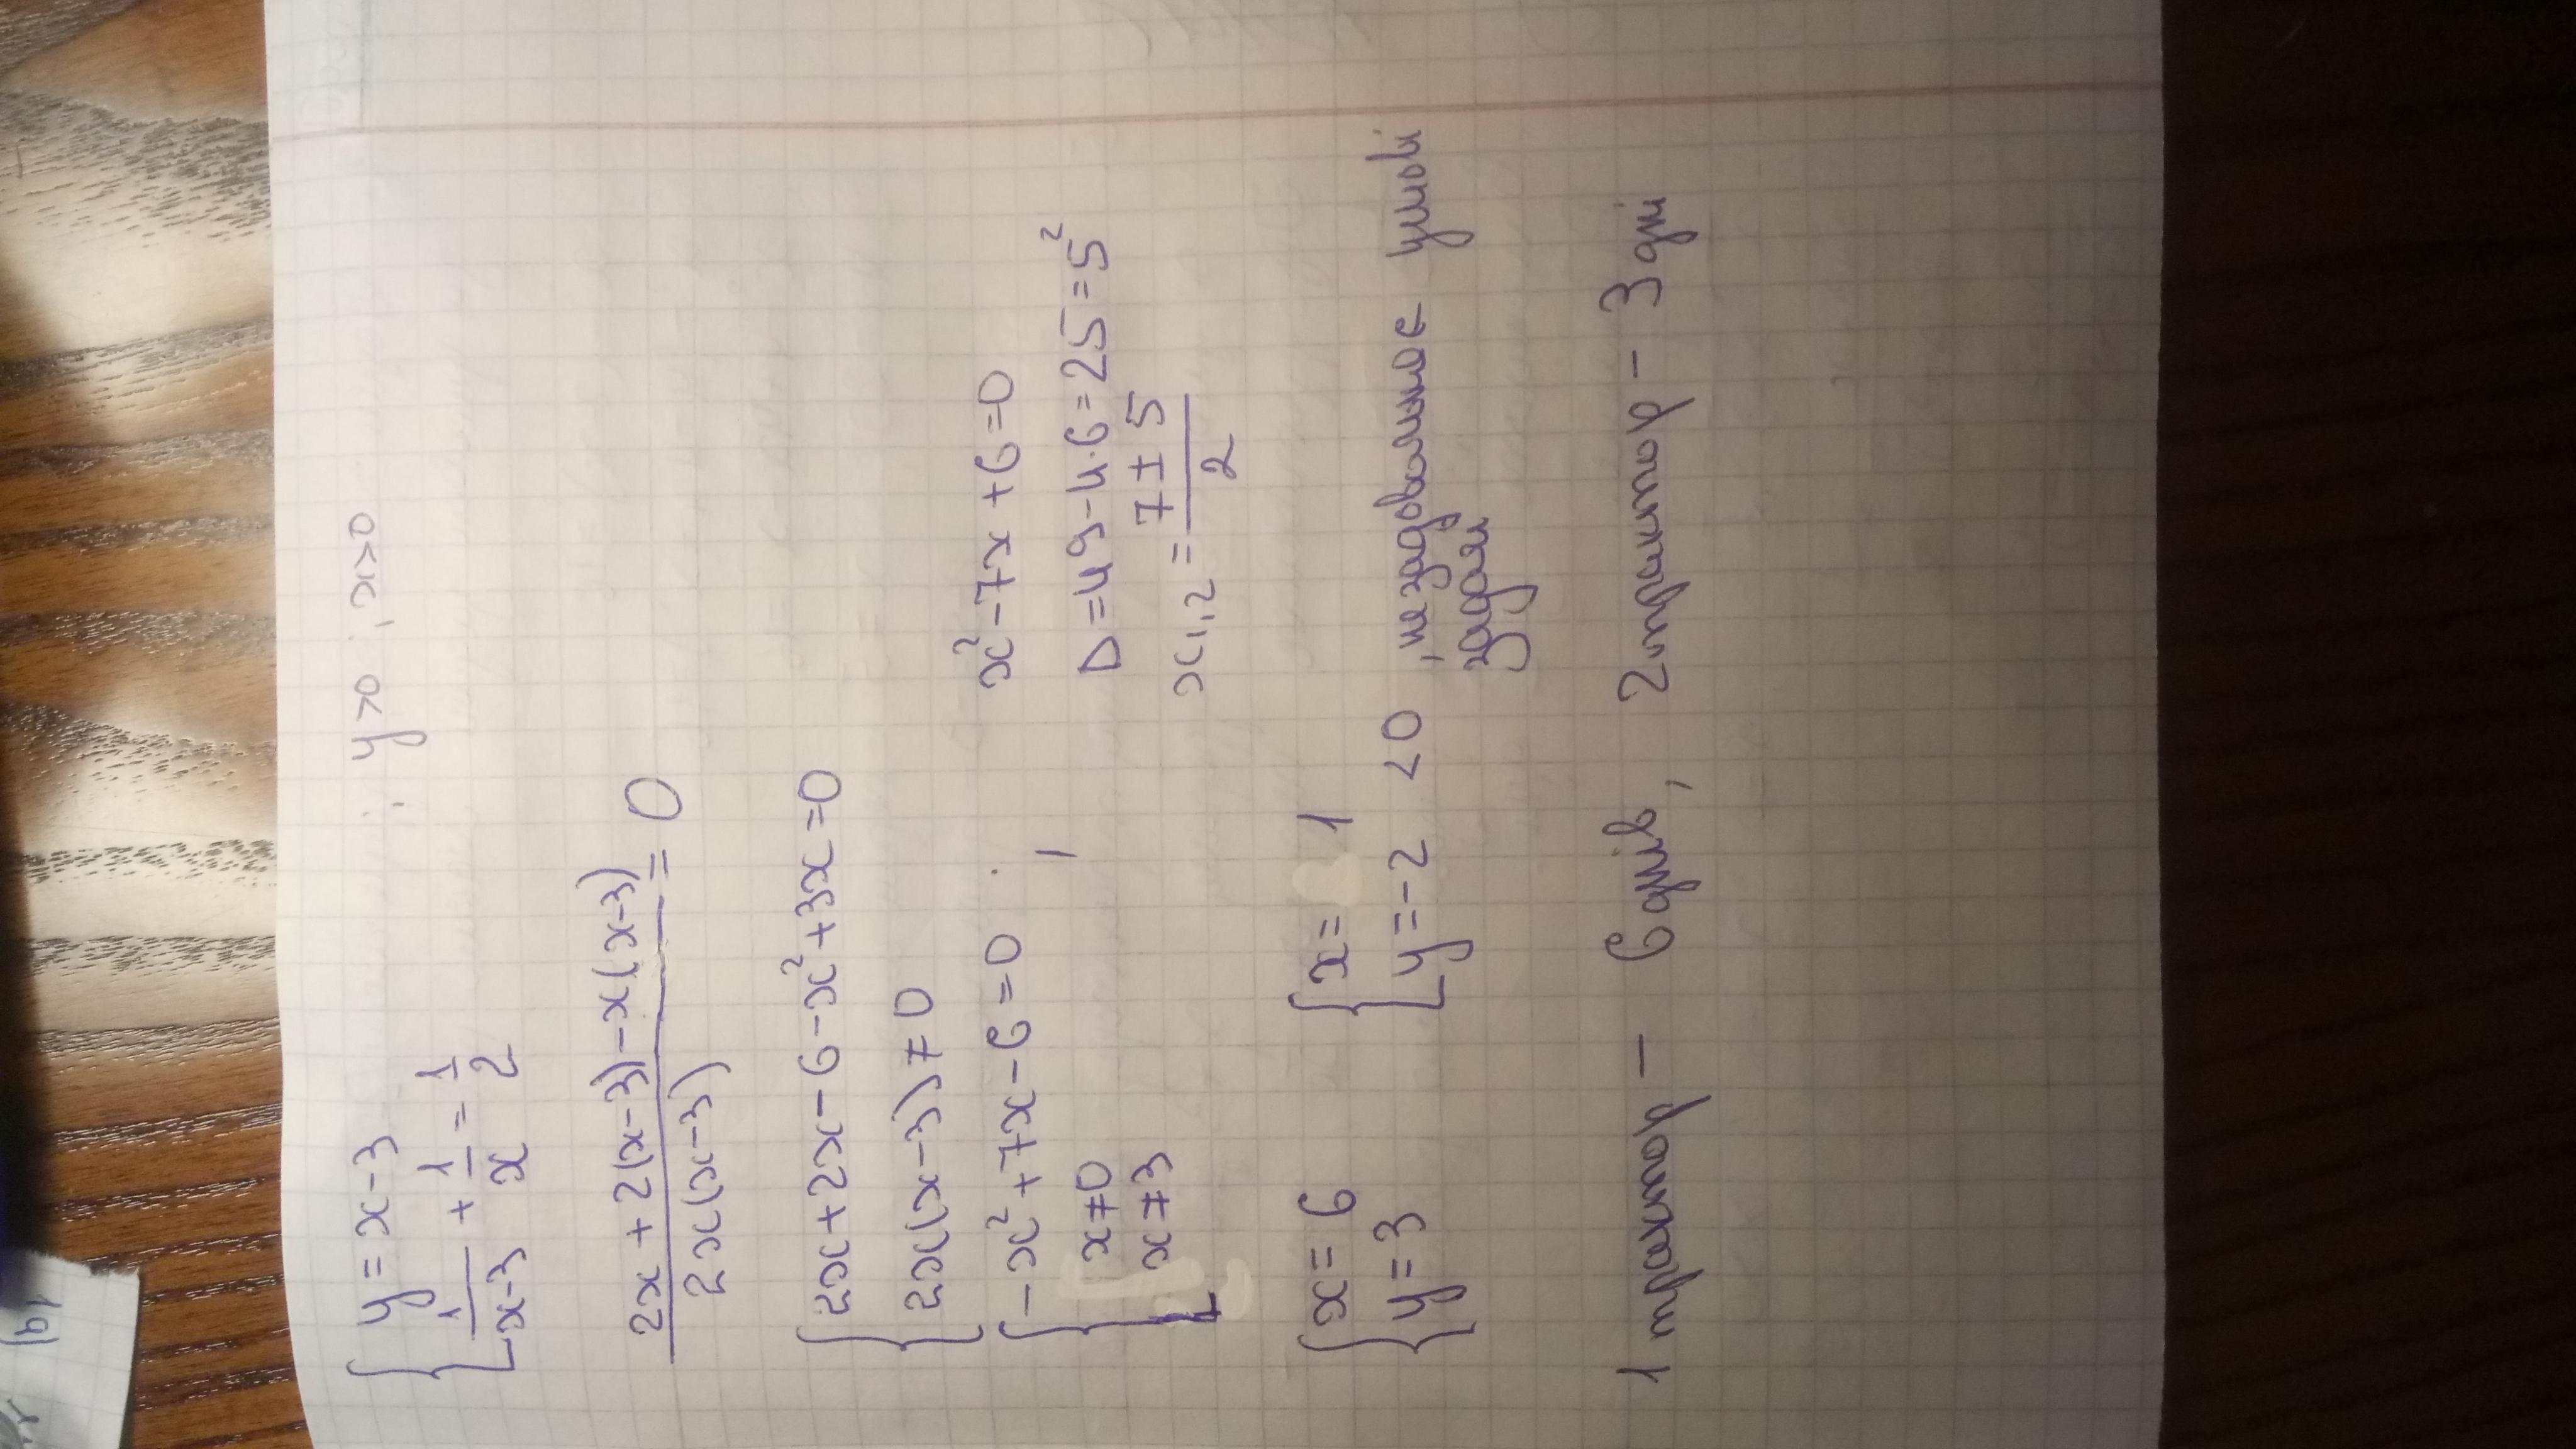 { y = x - 3 ; y > 0 ; x > 0
1/(x-3) + 1/x = 1/2
(2x + 2(x-3) - x(x-3))/(2x(x-3)) = 0
{ 2x + 2x - 6 - x² + 3x = 0
2x(x-3) ≠ 0
{ -x² + 7x - 6 = 0 ,
x ≠ 0
x ≠ 3
x² - 7x + 6 = 0
D = 49 - 4·6 = 25 = 5²
x1,2 = (7 ± 5)/2
{ x = 6
y = 3
{ x = 1
y = -2 < 0 , не задовольняє умові
задачі
1 трактор - 6 днів, 2 трактор - 3 дні